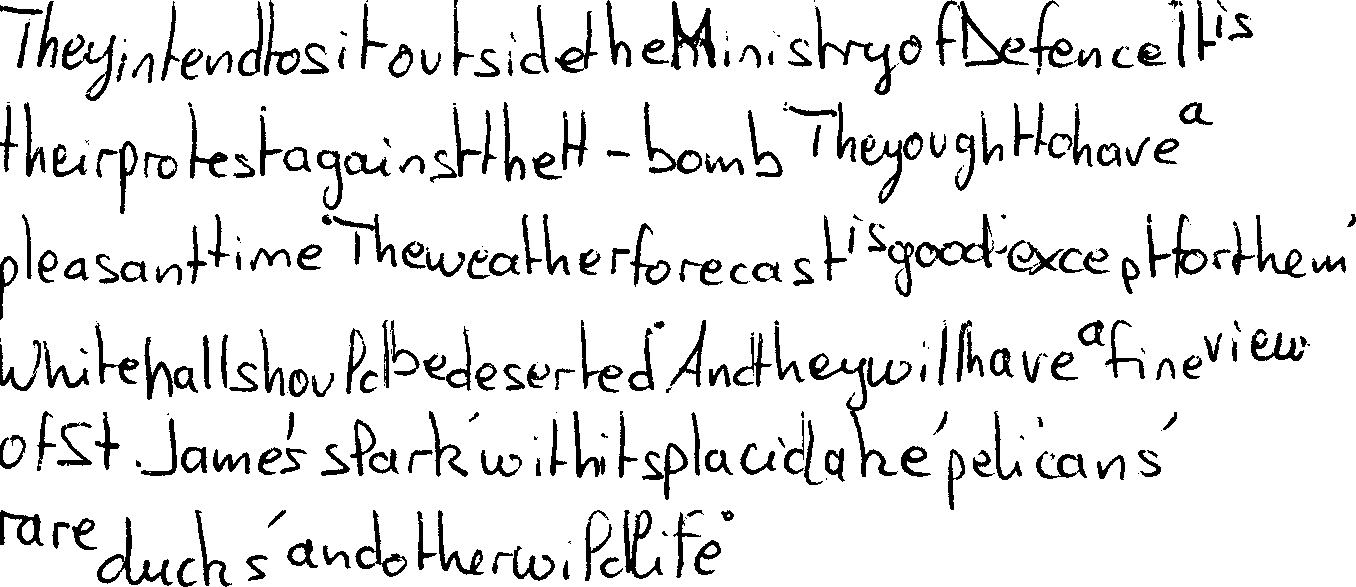 They intend to sit outside the Ministry of Defence It is
their protest against the H - bomb They ought to have a
pleasant time. The weather forecast is good. except for them,
Whitehall should be deserted. And they will have a fine view
of St. James's Park, with its placid lake, pelicans,
rare ducks, and other wildlife.